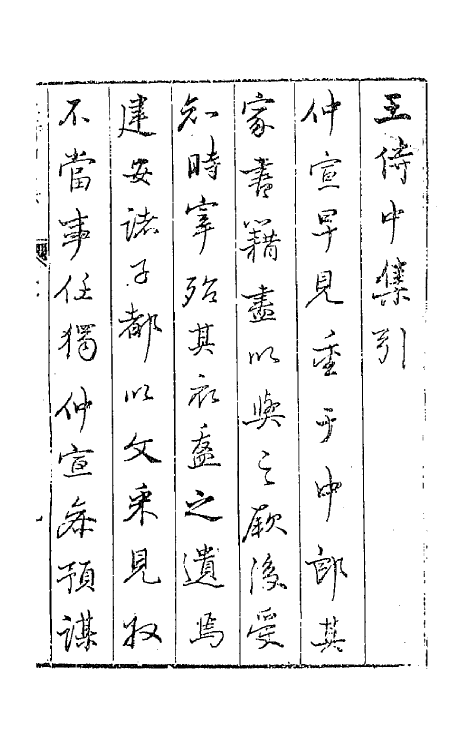 王侍中集引
仲宣早見重于中郎其
家書籍盡以與之厥後受
知時宰殆其衣盋之遺焉
建安諸子都以文采見收
不當事任獨仲宣叅預謀